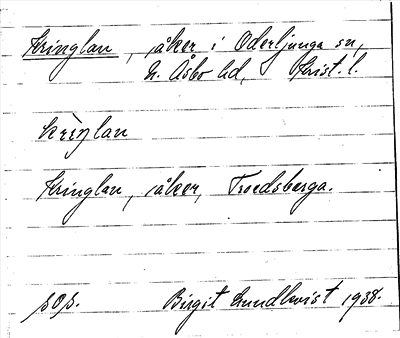 Kringlan, åker i Oderljunga sn,
N. Åsbo hd, Krist. l.
kriŋlan
Kringlan, åker, Troedsberga.
sos.
Birgit Lundkvist 1938.